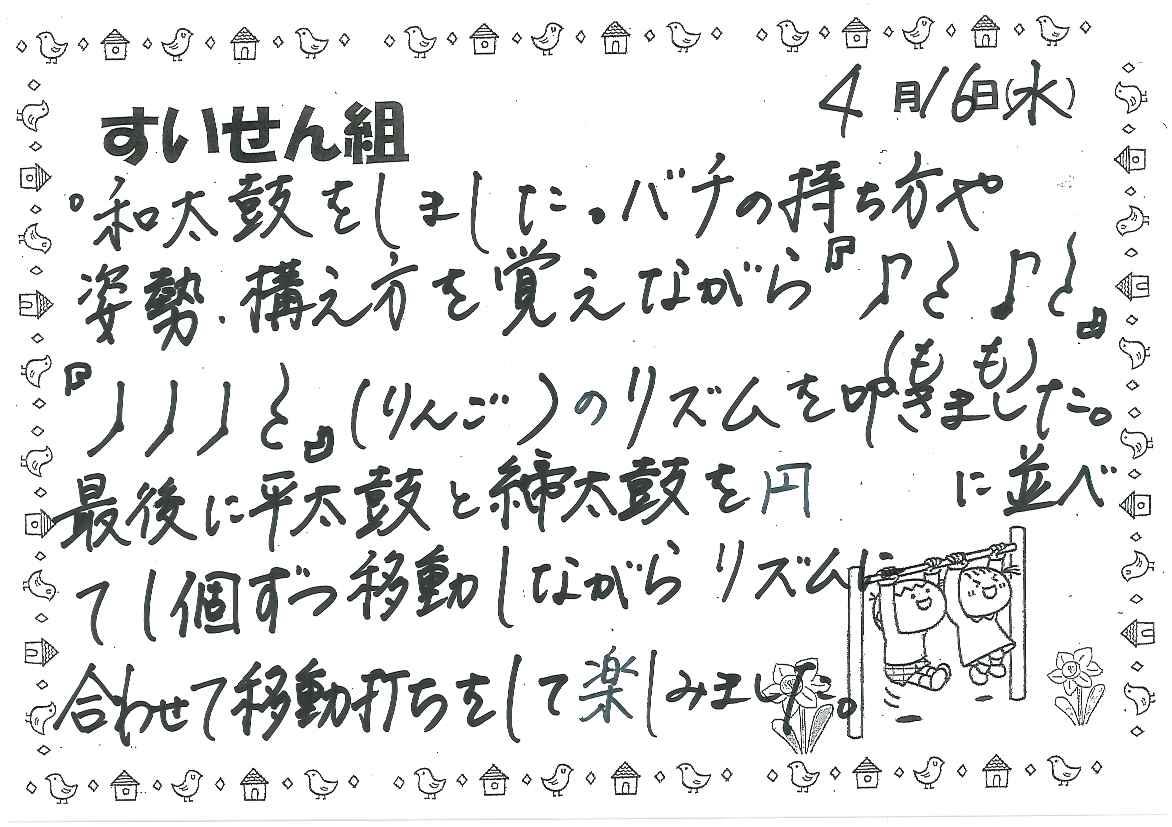 4月16日(水)
すいせん組
。和太鼓をしました。バチの持ち方や
姿勢、構え方を覚えながら『♪𝄽♪𝄽』
(もも)
『♩♩♩𝄽』(りんご)のリズムを叩きました。
最後に平太鼓と締太鼓を円に並べ
て1個ずつ移動しながらリズムに
合わせて移動打ちをして楽しみました。